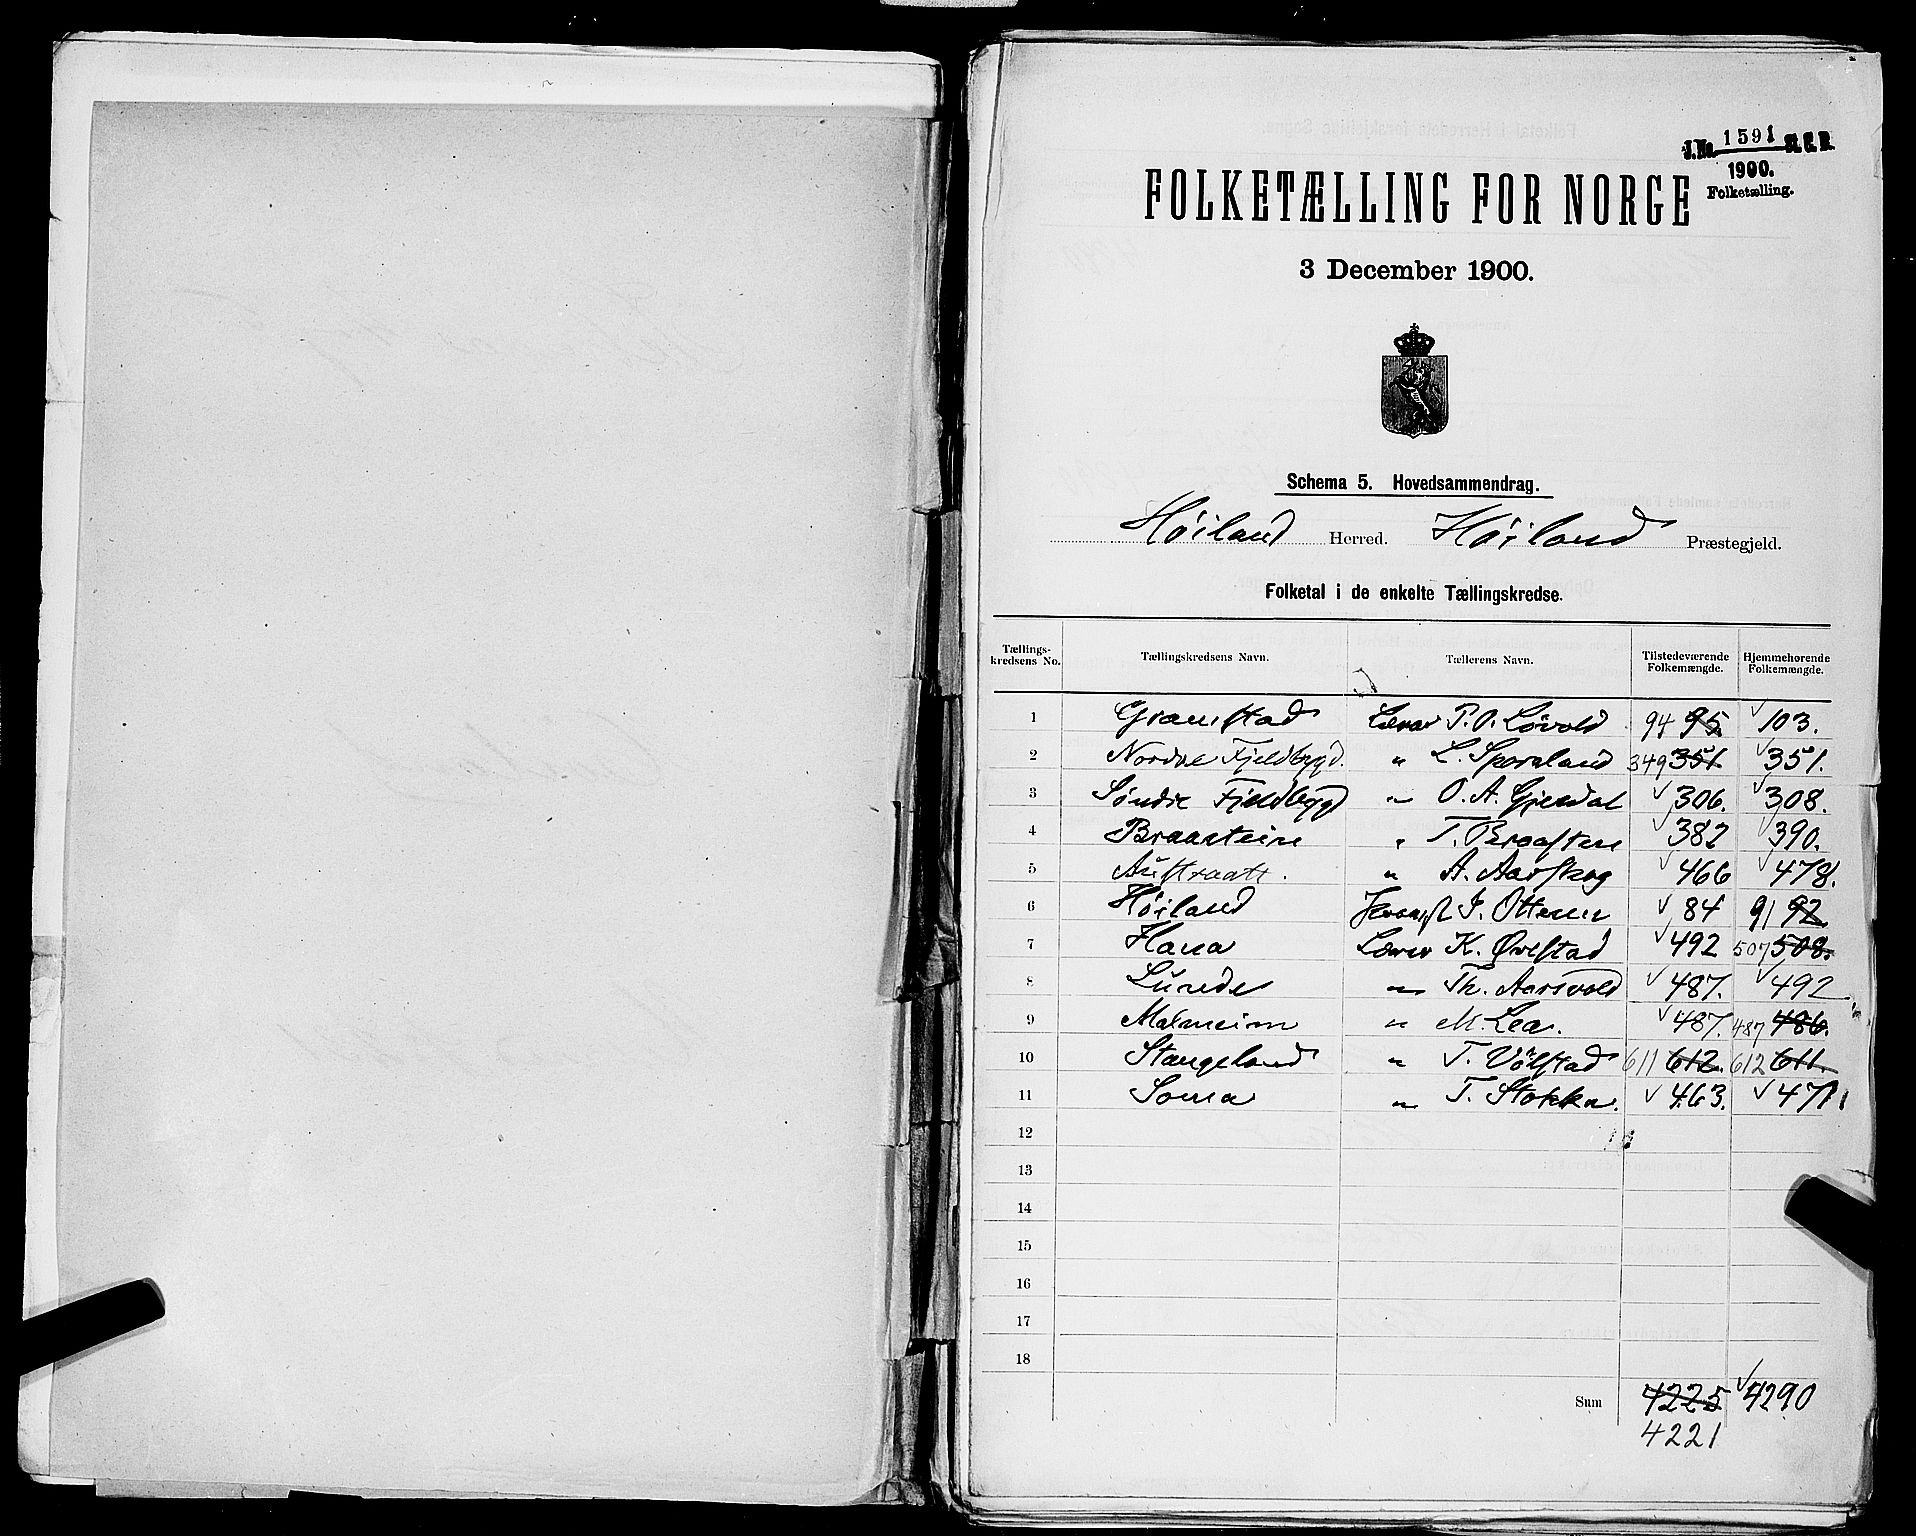 J.No. 1591 St. C. B.
1900.
Folketælling.
FOLKETÆLLING FOR NORGE
3 December 1900.
Schema 5. Hovedsammendrag.
Høiland Herred. Høiland Præstegjeld.
Folketal i de enkelte Tællingskredse.
Tællings-kredsens No. Tællingskredsens Navn. Tællerens Navn. Tilstedeværende Folkemængde. Hjemmehørende Folkemængde.
1 Gramstad Lærer P. O. Løvold 94 95. 103.
2 Nordre Fjeldbygd. " L. Sporaland 349 351. 351.
3 Søndre Fjeldbygd " O. A. Gjesdal 306. 308.
4 Braasteine " T. Braasten 382 390.
5 Austraatt. " A. Aarskog 466 478.
6 Høiland J. Ottesen 84 91 92
7 Hana Lærer K. Ørestad 492 507 508.
8 Lunde " Th. Aarsvold 487. 492
9 Malmeim " M. Lea. 487. 487 486.
10 Stangeland " T. Vølstad 611 612. 612 611.
11 Soma " T. Stokka. 463. 471
12
13
14
15
16
17
18
Sum 4225 4290
4221